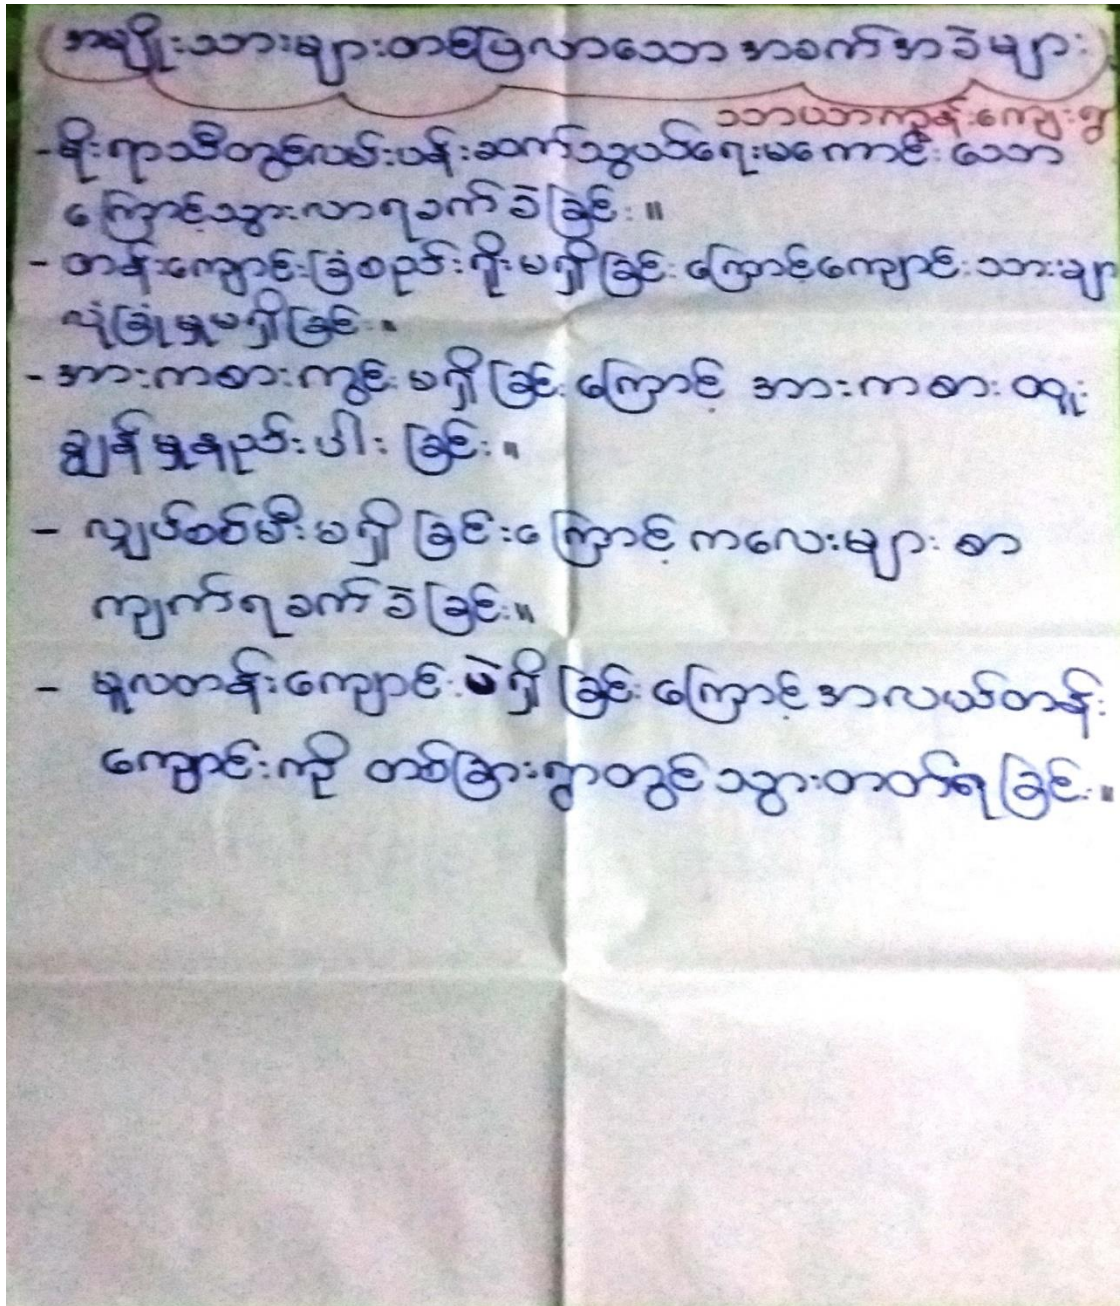 အမျိုးသားများတင်ပြလာသော အခက်အခဲများ
သာယာကုန်းကျေးရွာ
-မိုးရာသီတွင်လမ်းပန်းဆက်သွယ်ရေးမကောင်းသော
ကြောင့်သွားလာရခက်ခဲခြင်း။
- တန်းကျောင်းခြံစည်းရိုးမရှိခြင်းကြောင့်ကျောင်းသားများ
လုံခြုံမှုမရှိခြင်း။
- အားကစားကွင်းမရှိခြင်းကြောင့် အားကစားထူး
ချွန်မှုနည်းပါးခြင်း။
- လျှပ်စစ်မီးမရှိခြင်းကြောင့် ကလေးများ စာ
ကျက်ရခက်ခဲခြင်း။
- မူလတန်းကျောင်းမဲရှိခြင်းကြောင့် အလယ်တန်း
ကျောင်းကို တစ်ခြားရွာတွင်သွားတတ်ရခြင်း။